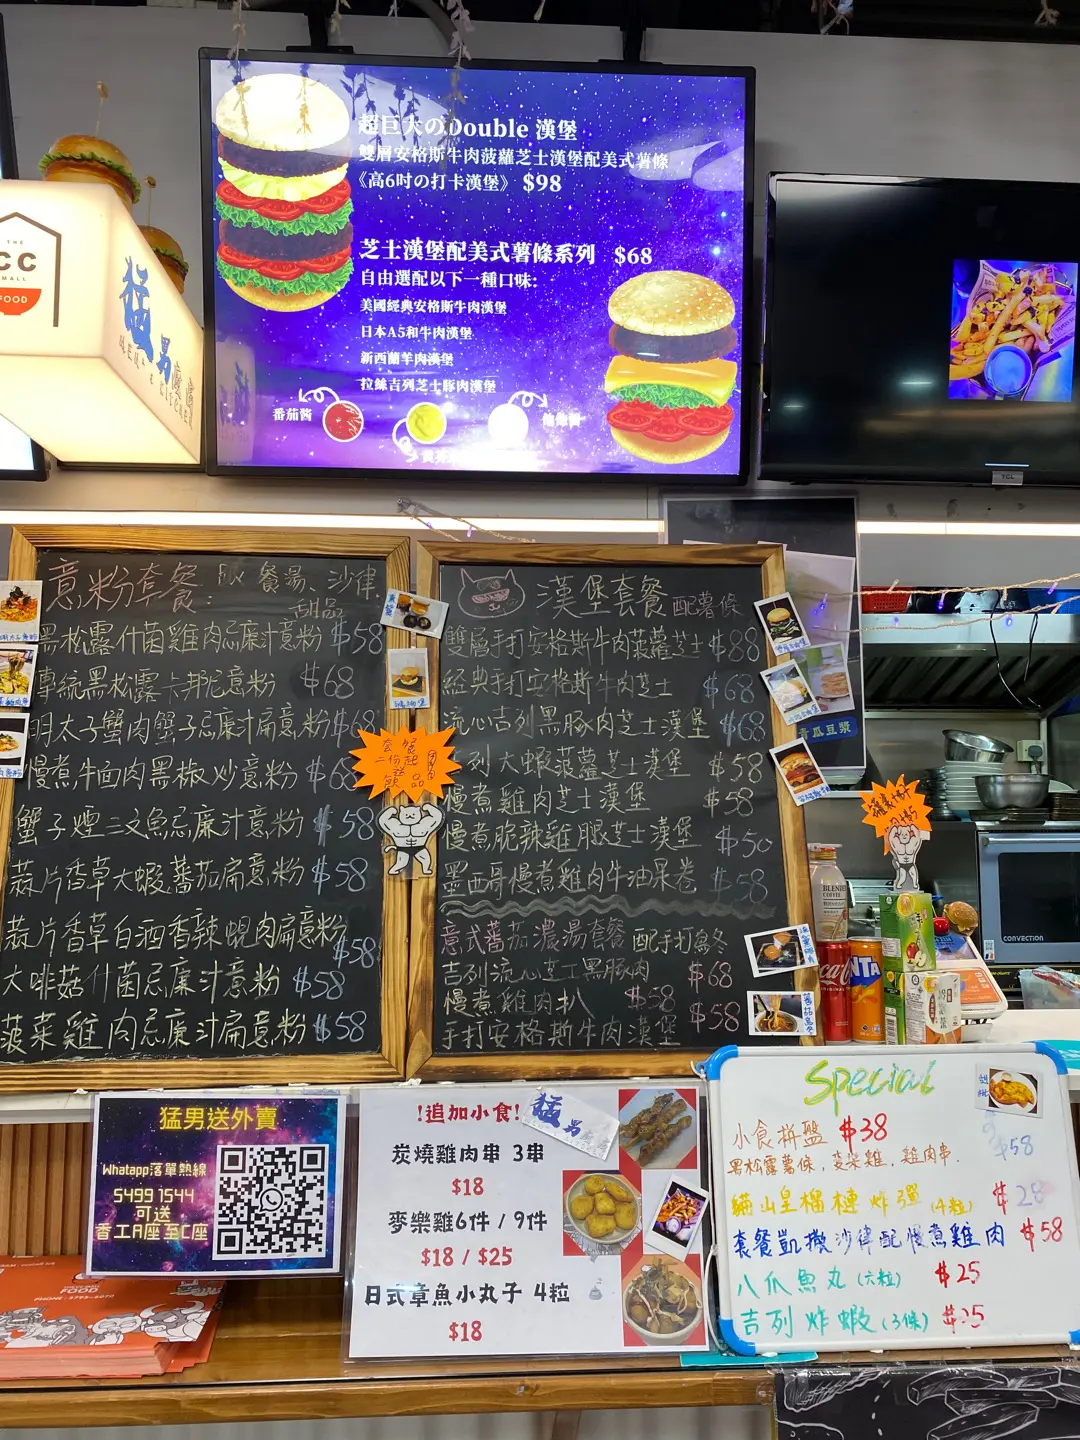 超巨大のDouble 漢堡
雙層安格斯牛肉菠蘿芝士漢堡配美式薯條
《高6吋の打卡漢堡》 $98
芝士漢堡配美式薯條系列 $68
自由選配以下一種口味:
美國經典安格斯牛肉漢堡
日本A5和牛肉漢堡
新西蘭羊肉漢堡
拉絲吉列芝士豚肉漢堡
番茄醬
THE
CC
MALL
FOOD
猛男廚房
TCL
意粉套餐: 跟 餐湯、沙律
甜品
黑松露什菌雞肉忌廉汁意粉 $58
傳統黑松露卡邦尼意粉 $68
明太子蟹肉蟹子忌廉汁扁意粉 $68
慢煮牛面肉黑椒炒意粉 $68
蟹子煙三文魚忌廉汁意粉 $58
蒜片香草大蝦蕃茄扁意粉 $58
蒜片香草白酒香辣蜆肉扁意粉 $58
大啡菇什菌忌廉汁意粉 $58
菠菜雞肉忌廉汁扁意粉 $58
套餐
二份起
飲品
漢堡套餐 配薯條
雙層手打安格斯牛肉菠蘿芝士 $88
經典手打安格斯牛肉芝士 $68
流心吉列黑豚肉芝士漢堡 $68
列大蝦菠蘿芝士漢堡 $58
慢煮雞肉芝士漢堡 $58
慢煮脆辣雞腿芝士漢堡 $50
墨西哥慢煮雞肉牛油果卷 $58
意式蕃茄濃湯套餐 配手打烏冬
吉列流心芝士黑豚肉 $68
慢煮雞肉扒 $58
手打安格斯牛肉漢堡 $58
青瓜豆漿
CONVECTION
猛男送外賣
Whatapp落單熱線
5499 1544
可送
香工A座至C座
FOOD
!追加小食!
猛男廚房
炭燒雞肉串 3串
$18
麥樂雞6件 / 9件
$18 / $25
日式章魚小丸子 4粒
$18
Special
小食拼盤 $38
黑松露薯條，麥樂雞，雞肉串.
$58
貓山皇榴槤炸彈 (4粒) $28
套餐凱撒沙律配慢煮雞肉 $58
八爪魚丸 (六粒) $25
吉列炸蝦 (3條) $25